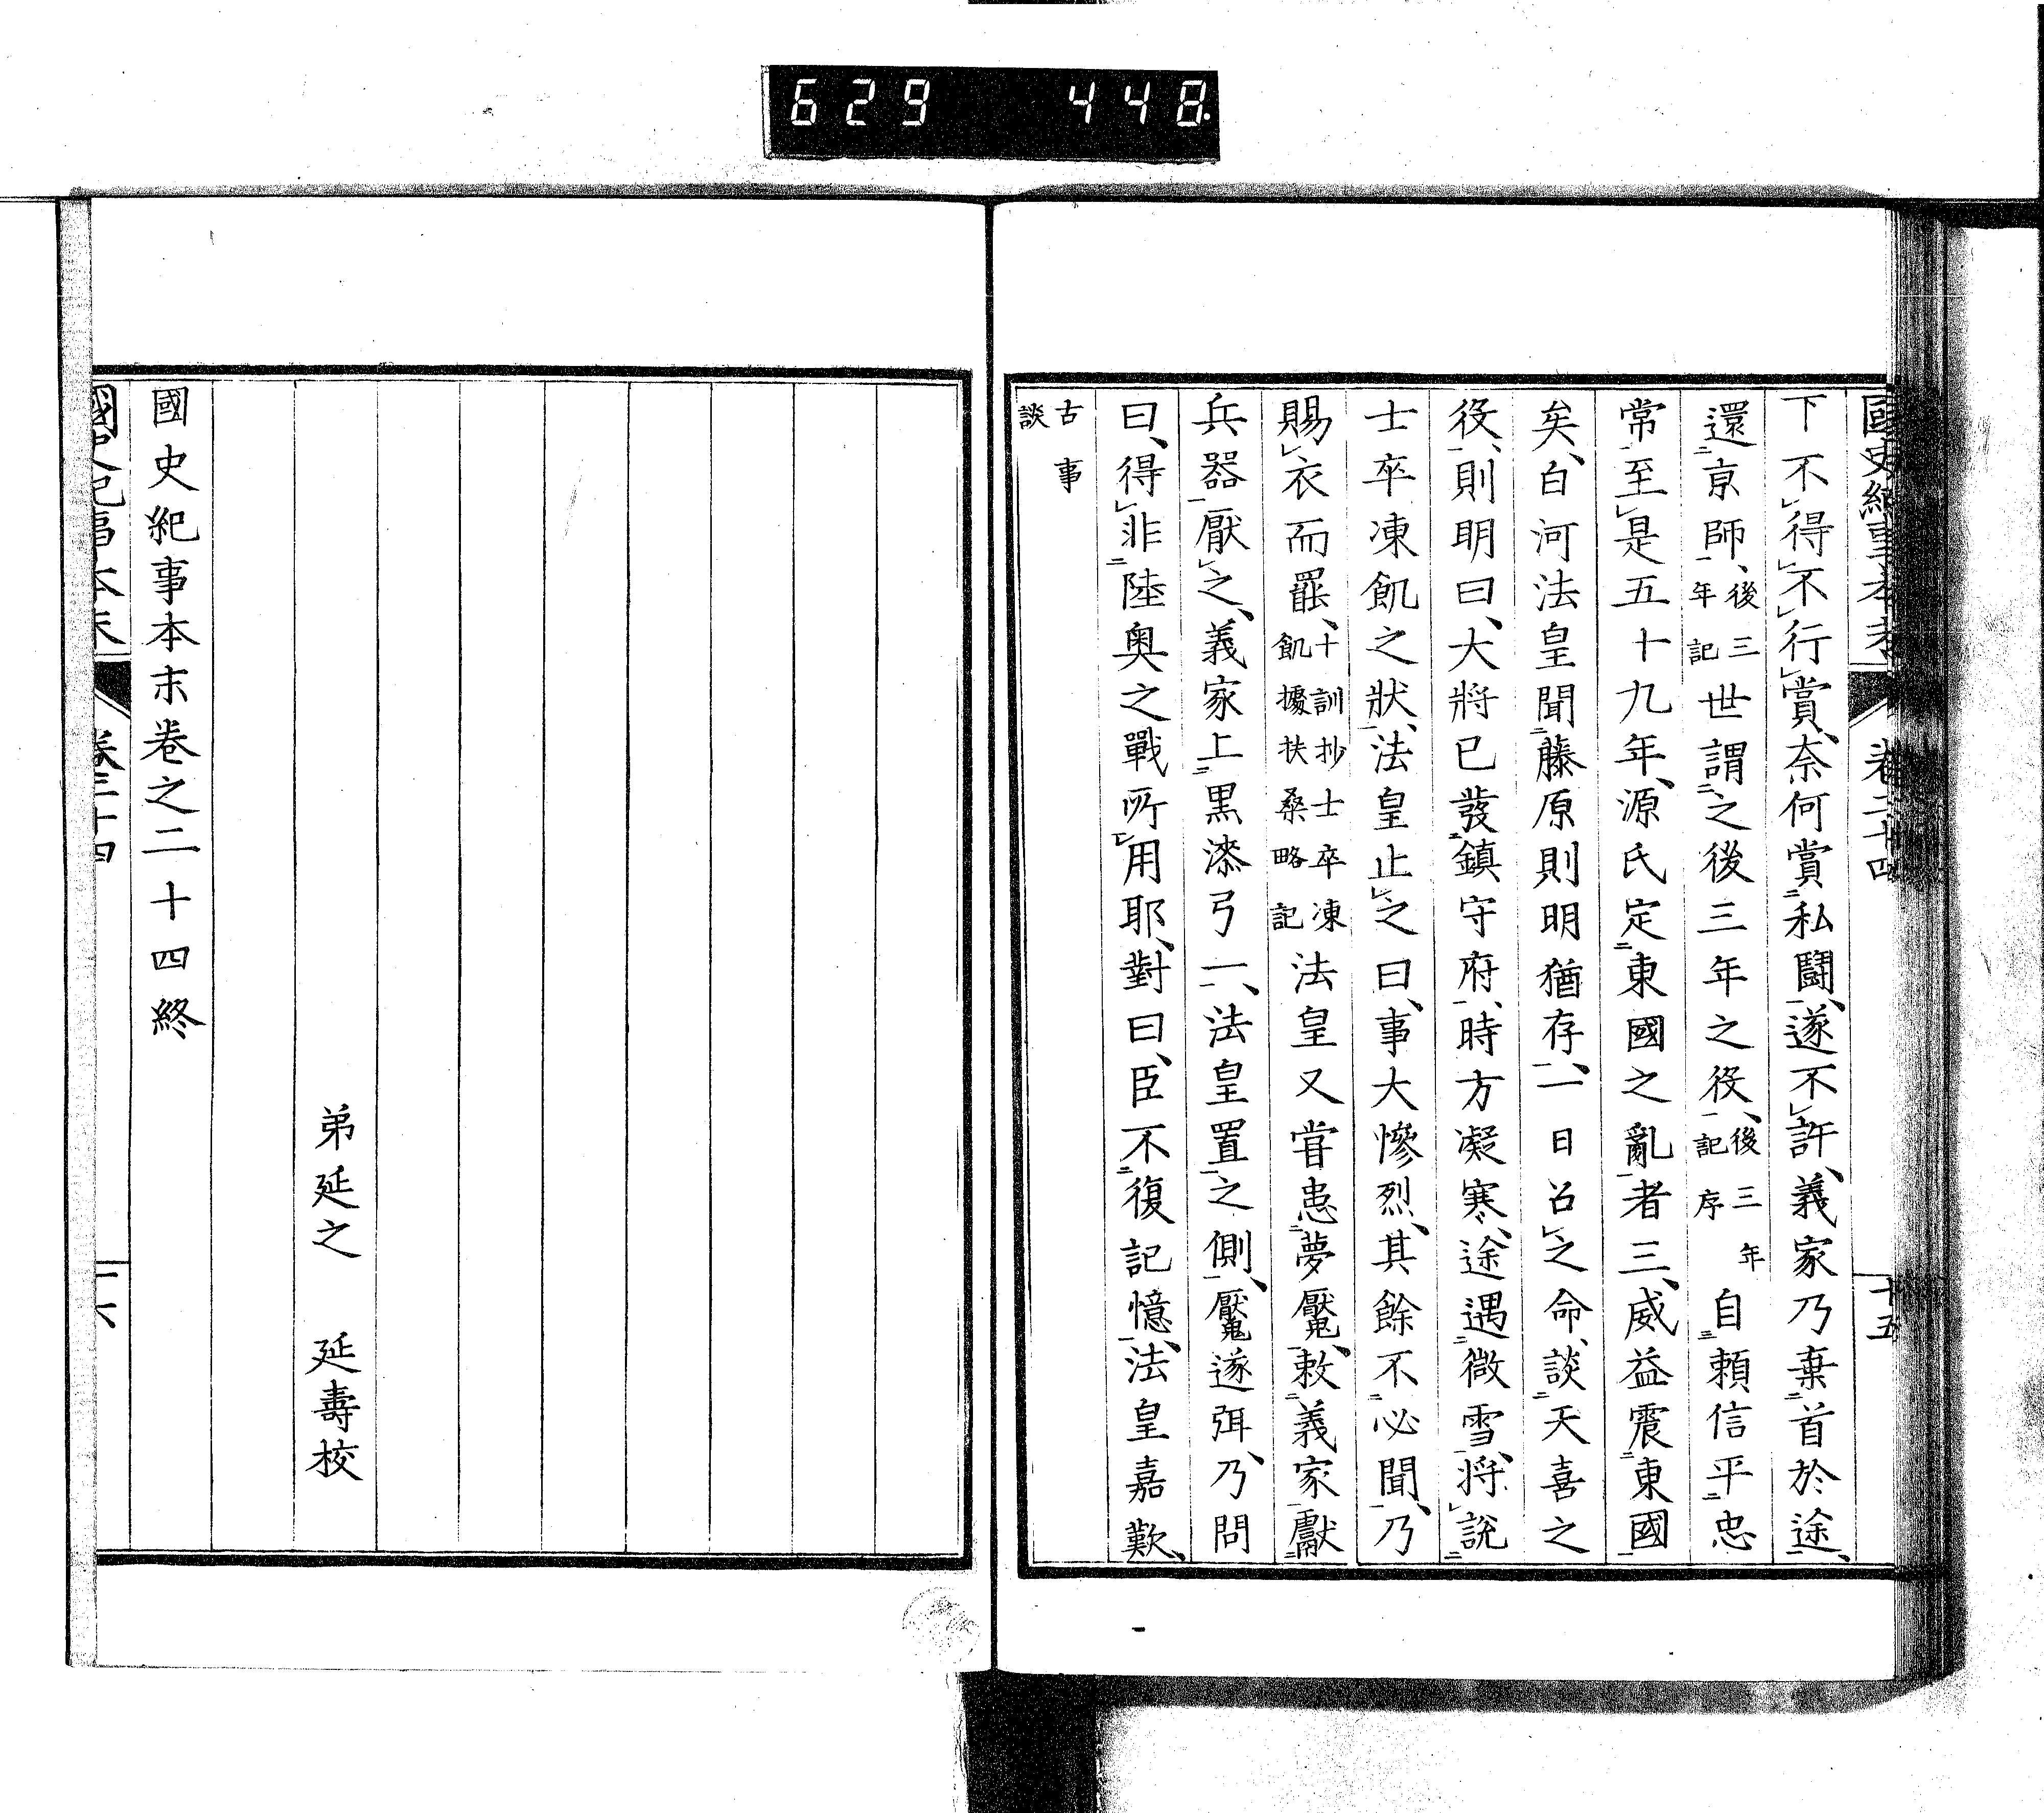 629 448.
國史紀事本末 卷二十四 十五
下不得不行賞、奈何賞私鬪、遂不許、義家乃棄首於途、
還京師、後三年記世謂之後三年之役、後三年記序自賴信平忠
常至是五十九年、源氏定東國之亂者三、威益震東國
矣、白河法皇聞藤原則明猶存、一日召之命、談天喜之
役、則明曰、大將已發鎮守府、時方凝寒、途遇微雪、將說
士卒凍飢之狀、法皇止之曰、事大慘烈、其餘不必聞、乃
賜衣而罷、十訓抄士卒凍飢據扶桑略記法皇又嘗患夢魘、敕義家獻
兵器厭之、義家上黑漆弓一、法皇置之側、魘遂弭、乃問
曰、得非陸奧之戰所用耶、對曰、臣不復記憶、法皇嘉歎、
古事談
弟延之 延壽校
國史紀事本末卷之二十四終
國史紀事本末 卷二十四 十六